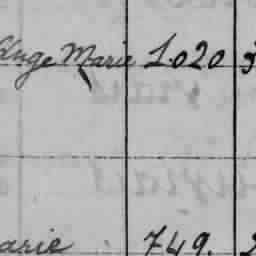 Ange Marie 1.020
arie 749.